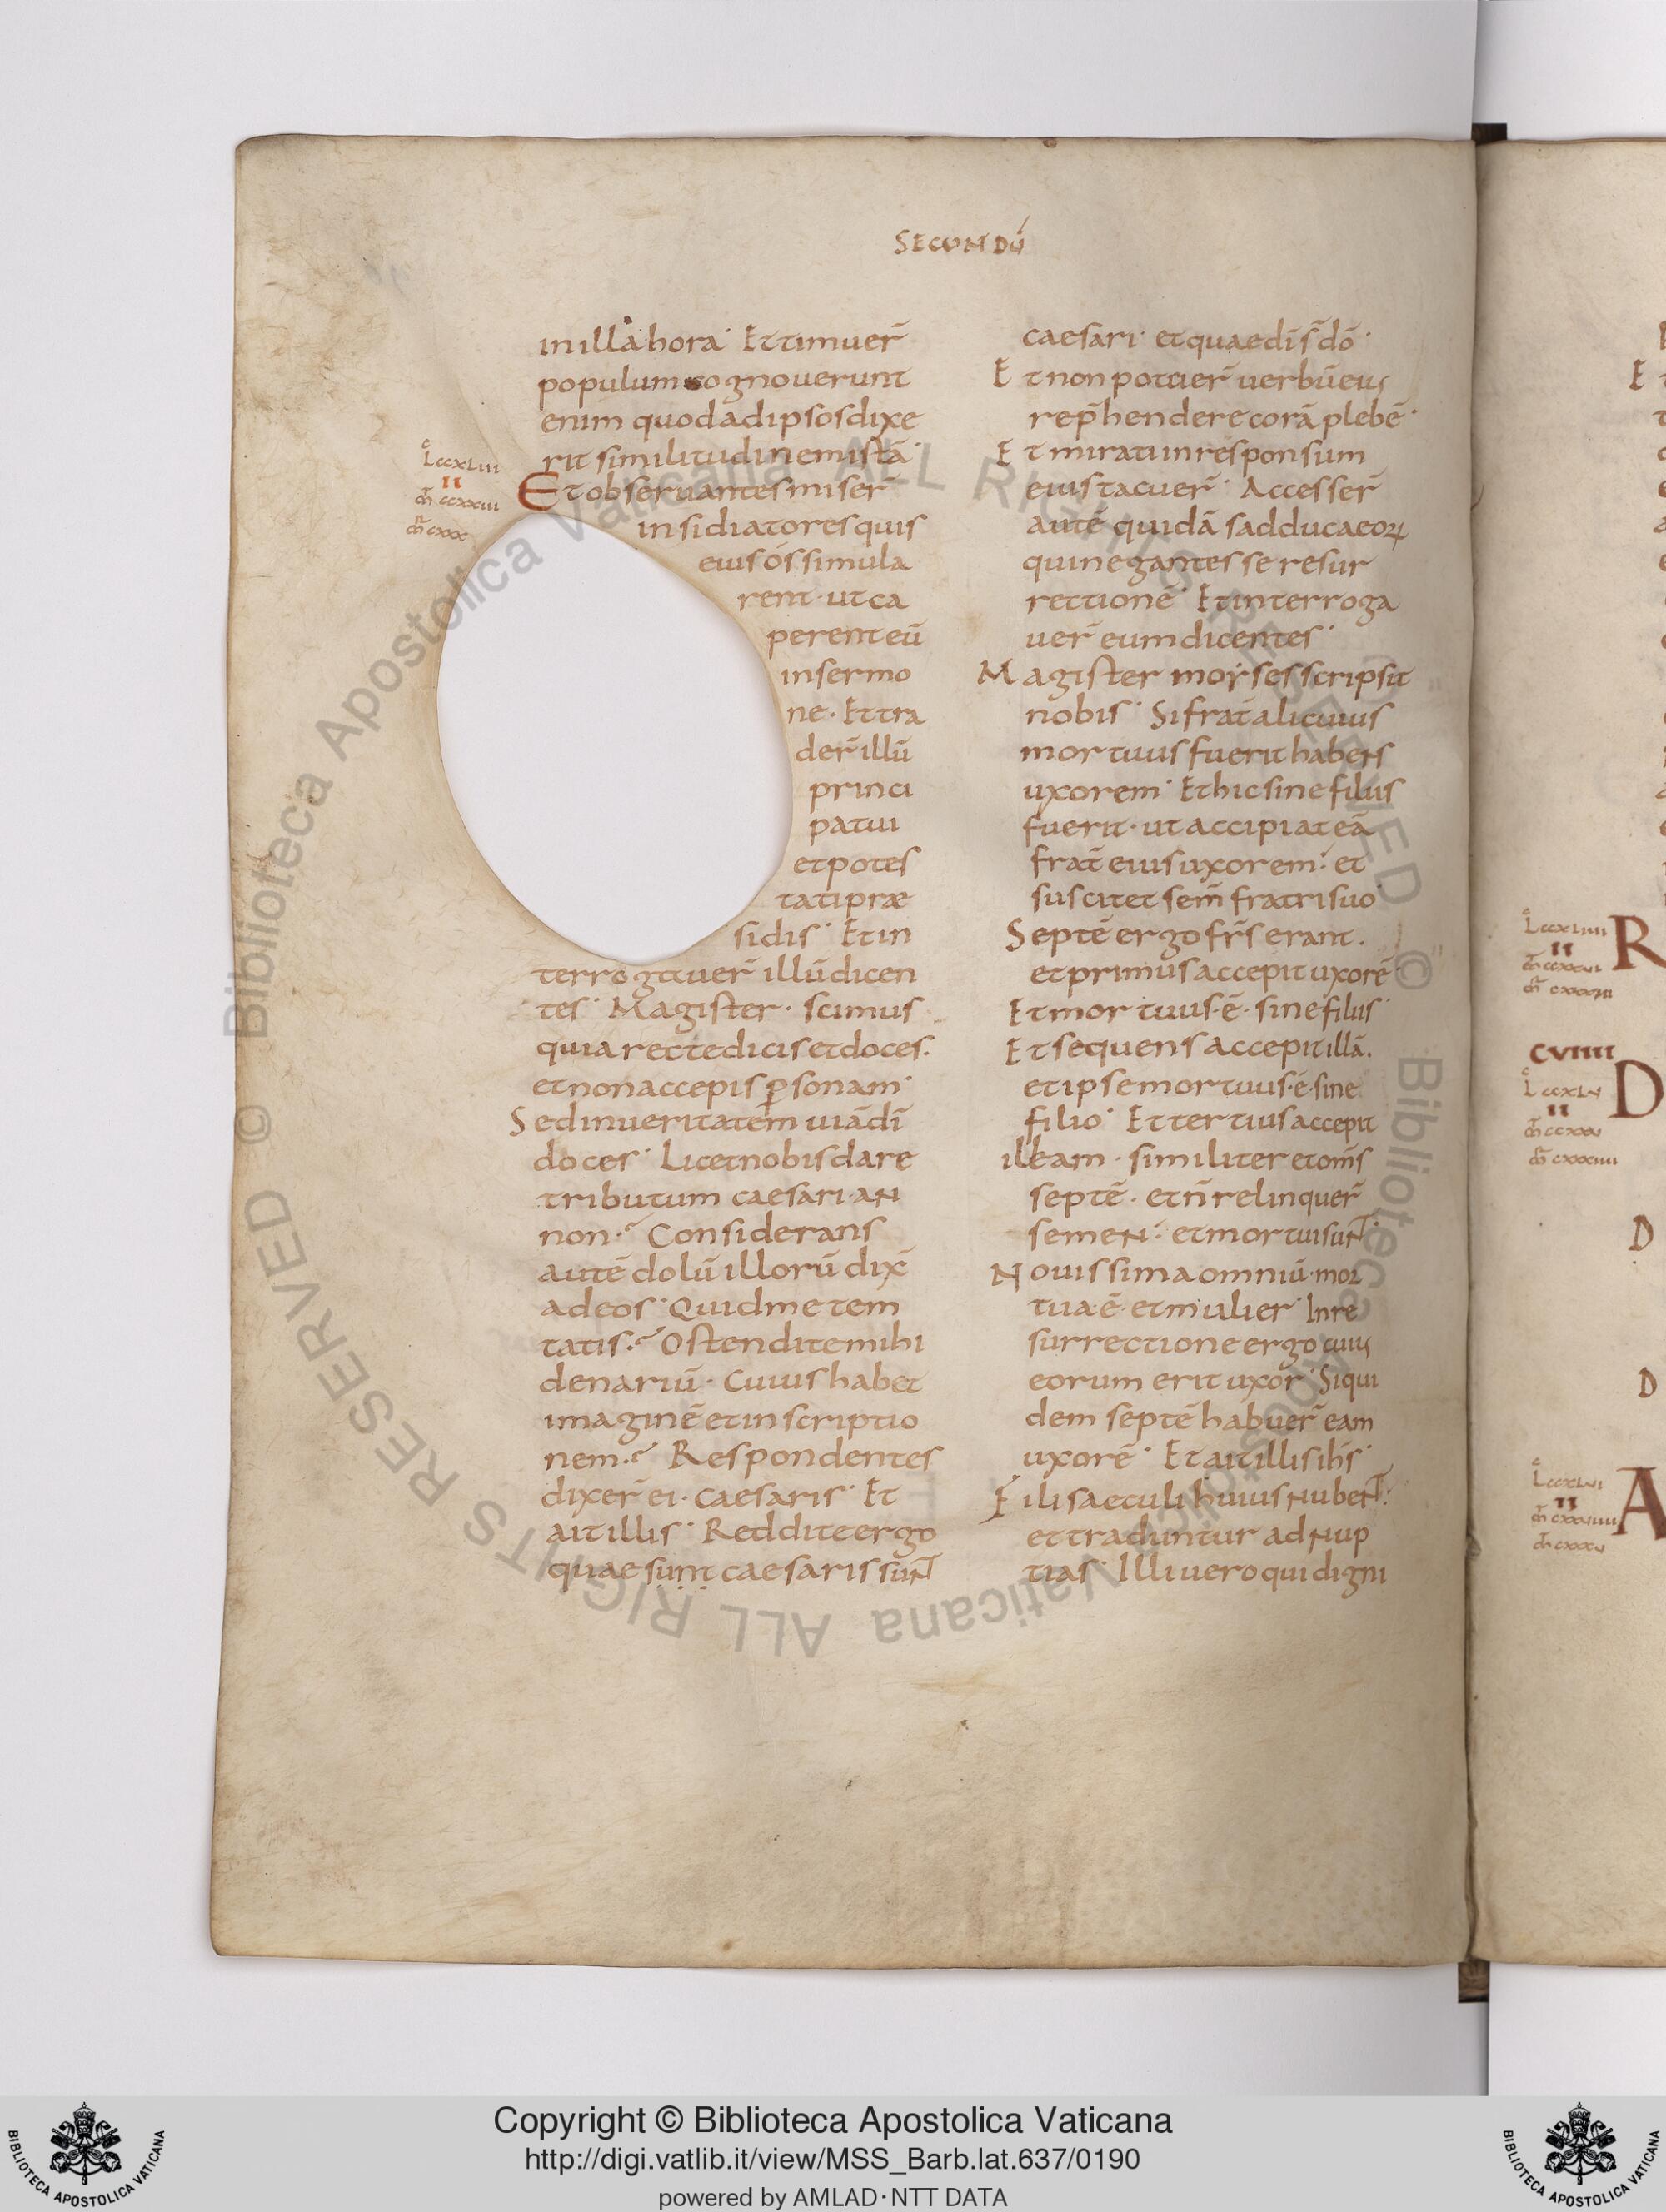 SECUNDŪ
in illa hora· Et timuer̄
populum cognouerunt
enim quod ad ipsos dixe
rit similitudinem istā·
L ccxliii
II
m̄ ccxxiii
Et obseruantes miser̄
insidiatores quis
eius ós simula
rent· ut ca
perent eū
in sermo
ne· Et tra
der̄ illū
princi
patui
et potes
tati præ
sidis· Et in
terrogauer̄ illū dicen
tes· Magister· scimus
quia recte dicis et doces·
et non accepis ꝑsonam·
Sed in ueritatem uiā dī
doces· Licet nobis dare
tributum caesari· an
non·? Considerans
autē dolū illorū dix̄
ad eos· Quid me tem
tatis·? Ostendite mihi
denariū· Cuius habet
imaginē et inscriptio
nem·? Respondentes
dixer̄ ei· caesaris· Et
ait illis· Reddite ergo
quae sunt caesaris sunt
caesari· et quae di s̄ dō·
Et non potuer̄ uerbū eius
rep̄hendere corā plebē·
Et mirati in responsum
eius tacuer̄· Accesser̄
autē quidā sadducaeoꝝ
qui negantes se resur
rectionē· Et interroga
uer̄ eum dicentes·
Magister moyses scripsit
nobis· Si frat̄ alicuius
mortuus fuerit habens
uxorem· Et hic sine filiis
fuerit· ut accipiat eā
frat̄ eius uxorem· et
suscitet sem̄ fratri suo
Septē ergo fr̄s erant·
et primus accepit uxorē·
Et mortuus·ē· sine filiis·
Et sequens accepit illā·
et ipse mortuus·ē·sine
filio· Et tertius accepit
illeam· similiter et om̄s
septē· et n̄ relinquer̄
semen· et mortui sunt·
Nouissima omniū· mor
tua·ē· et mulier· In re
surrectione ergo cuius
eorum erit uxor· Siqui
dem septē habuer̄ eam
uxorē· Et ait illis ih̄s·
Fili saeculi huius nubent·
et traduntur ad nup
tias· Illi uero qui digni
R
CVIIII
D
D
D
A
Copyright © Biblioteca Apostolica Vaticana
http://digi.vatlib.it/view/MSS_Barb.lat.637/0190
powered by AMLAD·NTT DATA
BIBLIOTECA APOSTOLICA VATICANA
BIBLIOTECA APOSTOLICA VATICANA
© Biblioteca Apostolica Vaticana ALL RIGHTS RESERVED
© Biblioteca Apostolica Vaticana ALL RIGHTS RESERVED